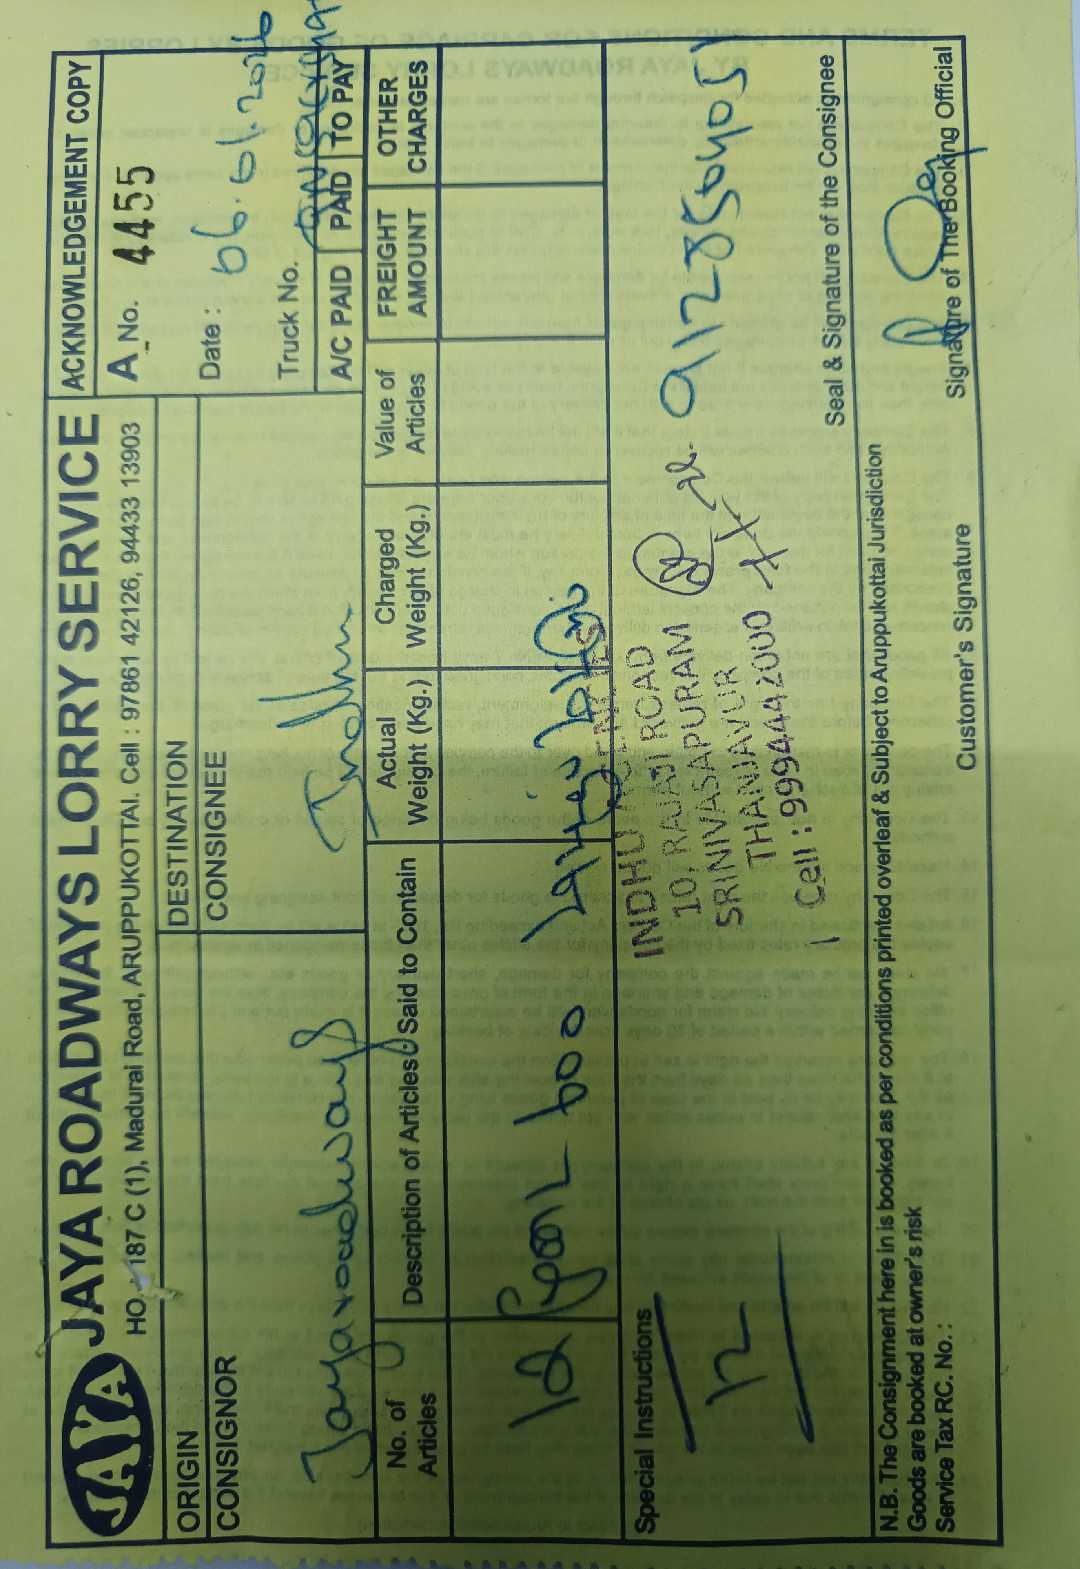 JAYA
JAYA ROADWAYS LORRY SERVICE
HO. - 187 C (1), Madurai Road, ARUPPUKOTTAI. Cell : 97861 42126, 94433 13903
ACKNOWLEDGEMENT COPY
A No. 4455
ORIGIN
DESTINATION
Date : 06.01.2026
CONSIGNOR
CONSIGNEE
Truck No.
Jayaroadways
Indhu
A/C PAID PAID TO PAY
No. of Articles
Description of Articles Said to Contain
Actual Weight (Kg.)
Charged Weight (Kg.)
Value of Articles
FREIGHT AMOUNT
OTHER CHARGES
12
600
Special Instructions
12
INDHU AGENCIES
10, RAJAJI ROAD
SRINIVASAPURAM
THANJAVUR
Cell : 9994442000
Seal & Signature of the Consignee
N.B. The Consignment here in is booked as per conditions printed overleaf & Subject to Aruppukottai Jurisdiction
Goods are booked at owner's risk
Service Tax RC. No. :
Customer's Signature
Signature of The Booking Official